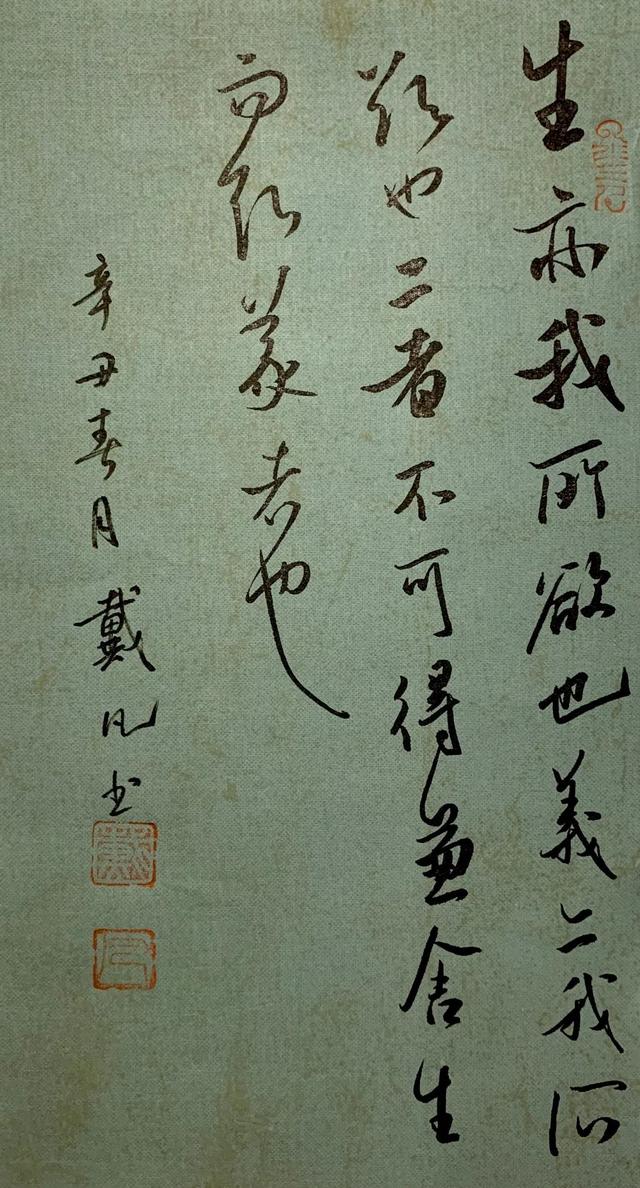 生亦我所欲也義亦我所
欲也二者不可得兼舍生
而取義者也
辛丑春月戴凡书
戴
凡